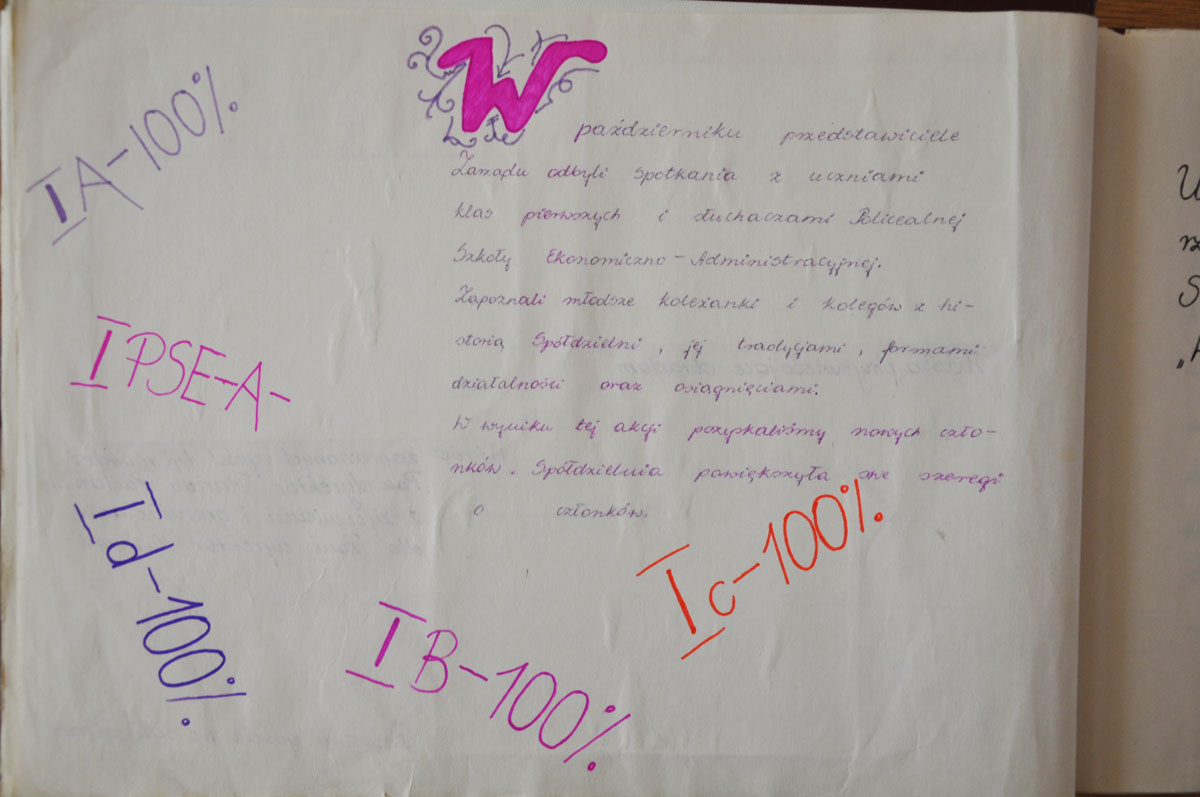 W
październiku przedstawiciele
Zarządu odbyli spotkania z uczniami
klas pierwszych i słuchaczami Policealnej
Szkoły Ekonomiczno-Administracyjnej.
Zapoznali młodsze koleżanki i kolegów z hi-
storią Spółdzielni, jej tradycjami, formami
działalności oraz osiągnięciami.
W wyniku tej akcji pozyskaliśmy nowych czło-
nków. Spółdzielnia powiększyła swe szeregi
o członków.
IA-100%
I PSE-A-
Id-100%
IB-100%
Ic-100%